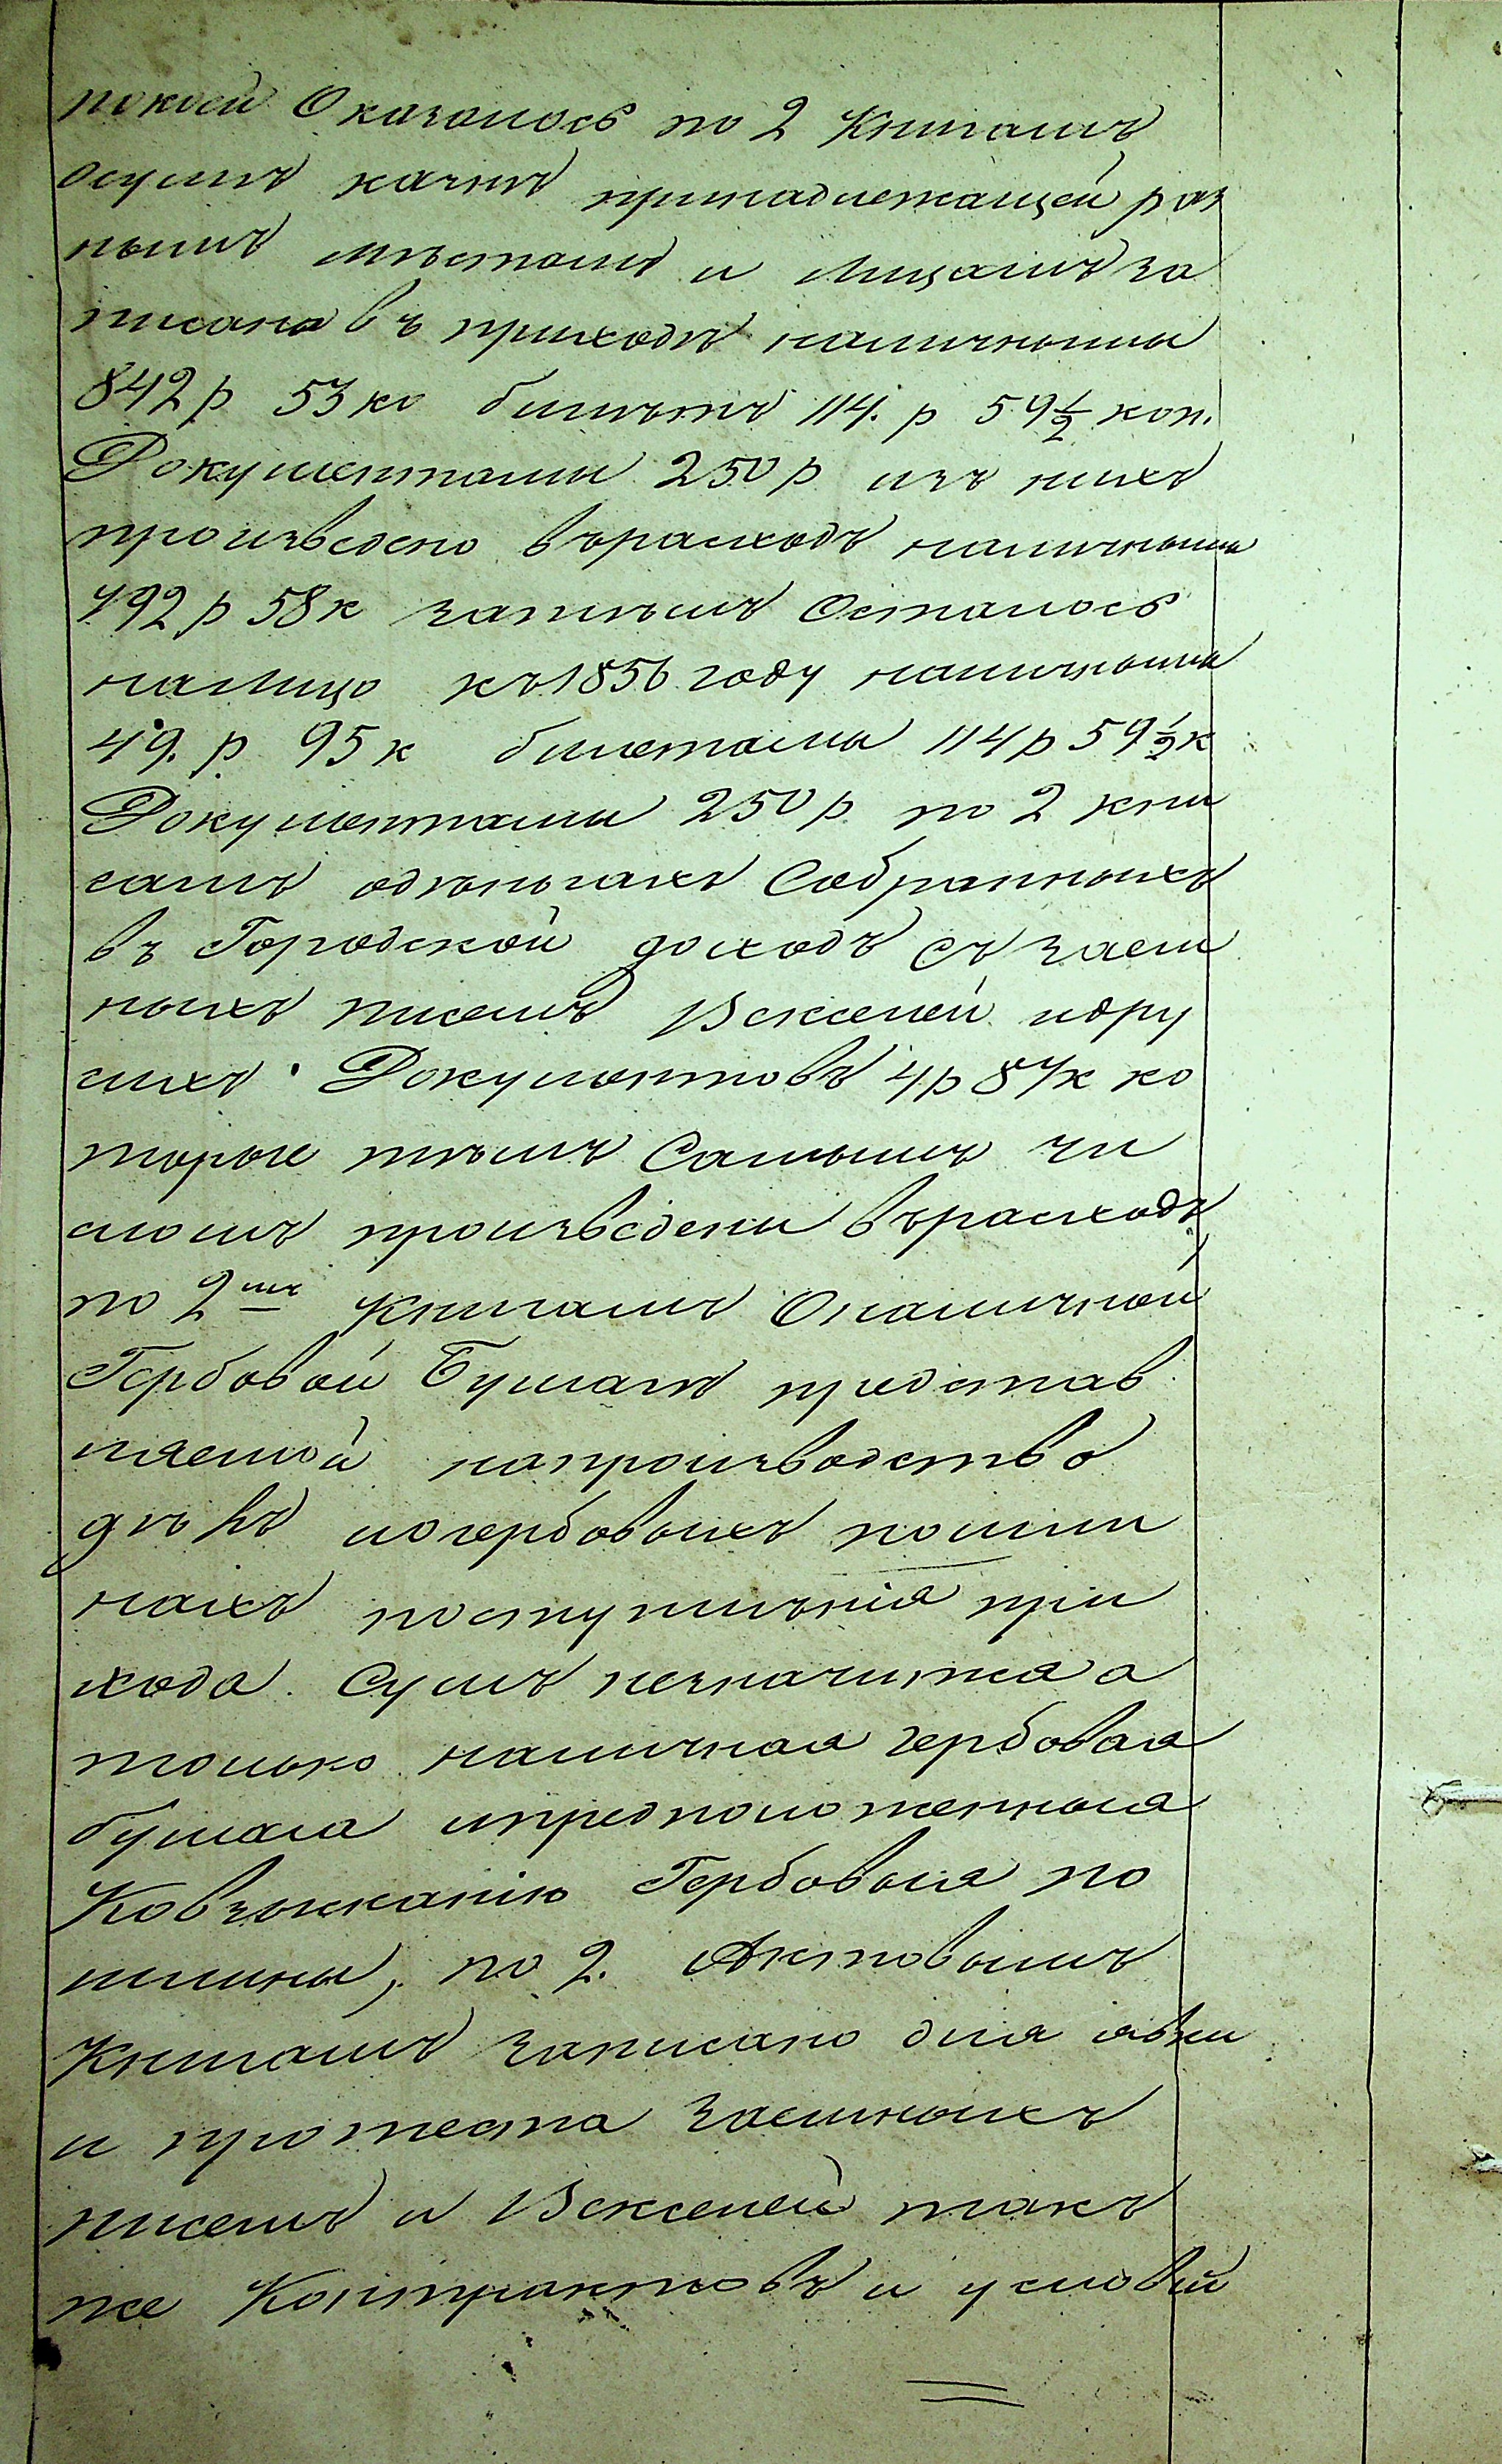 покоей Оказалось по 2 Книгамъ
осумъ казнѣ принадлежащей раз
нымъ мѣстамъ и Лицамъ за
писано въ приходъ наличными
842 р 53 ко билѣтъ 114. р 59½ коп.
Документами 250 р изъ нихъ
произведено върасходъ наличными
792 р 58 к затѣмъ Осталось
наЛицо къ1856 году наличными
49. р 95 к билетами 114 р 59½ к
Документами 250 р по 2 кни
гамъ оденьгахъ Собранныхъ
въ Городской доходъ съ заем
ныхъ писемъ Векселей идру
гихъ Документовъ 4 р 87 к ко
торые тѣмъ Самымъ чи
сломъ произведены върасходъ,
по 2мъ Книгамъ Оналичной
Гербовой Бумагѣ представ
ляемой напроизводство
дѣлъ иогербовыхъ пошли
нахъ поступленія при
хода Сумъ незначится а
только наличная гербовая
бумага ипредположенныя
Ковзысканію Гербовыя по
шлины, по 2. Актовымъ
Книгамъ записано для явки
и протеста Заемныхъ
писемъ и Векселей такъ
же Контрактовъ и условій